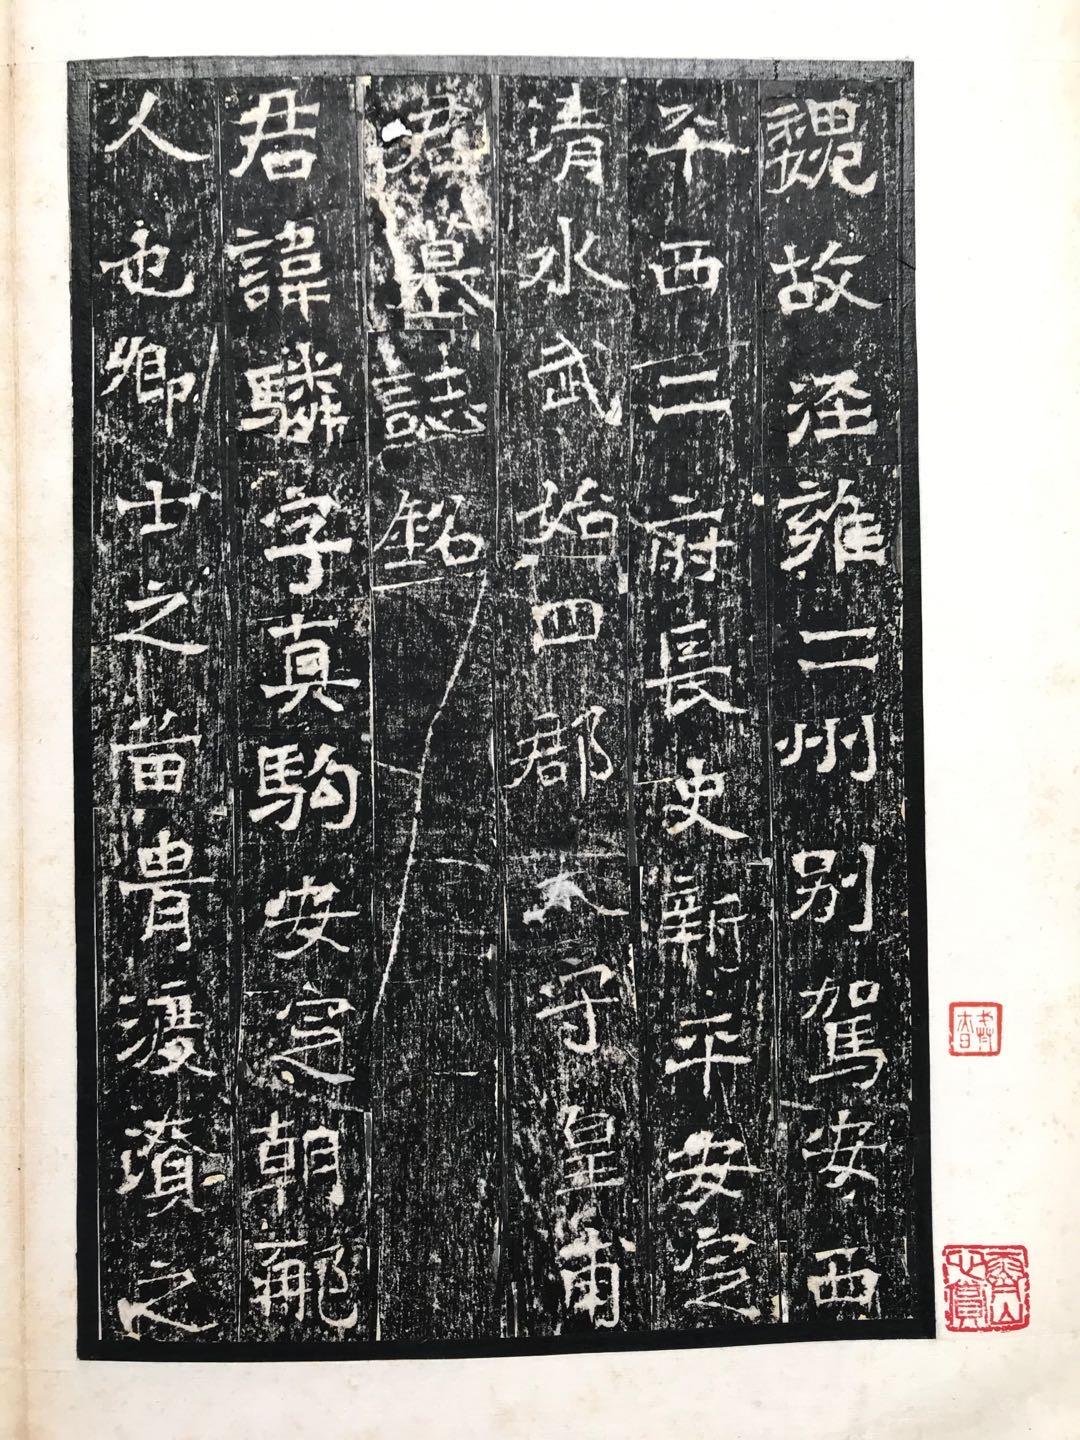 魏故涇雍二州别駕安西
平西二府長史新平安定
清水武始四郡太守皇甫
君墓誌銘
君諱驎字真駒安定朝那
人也卿士之苗胄漫漬之